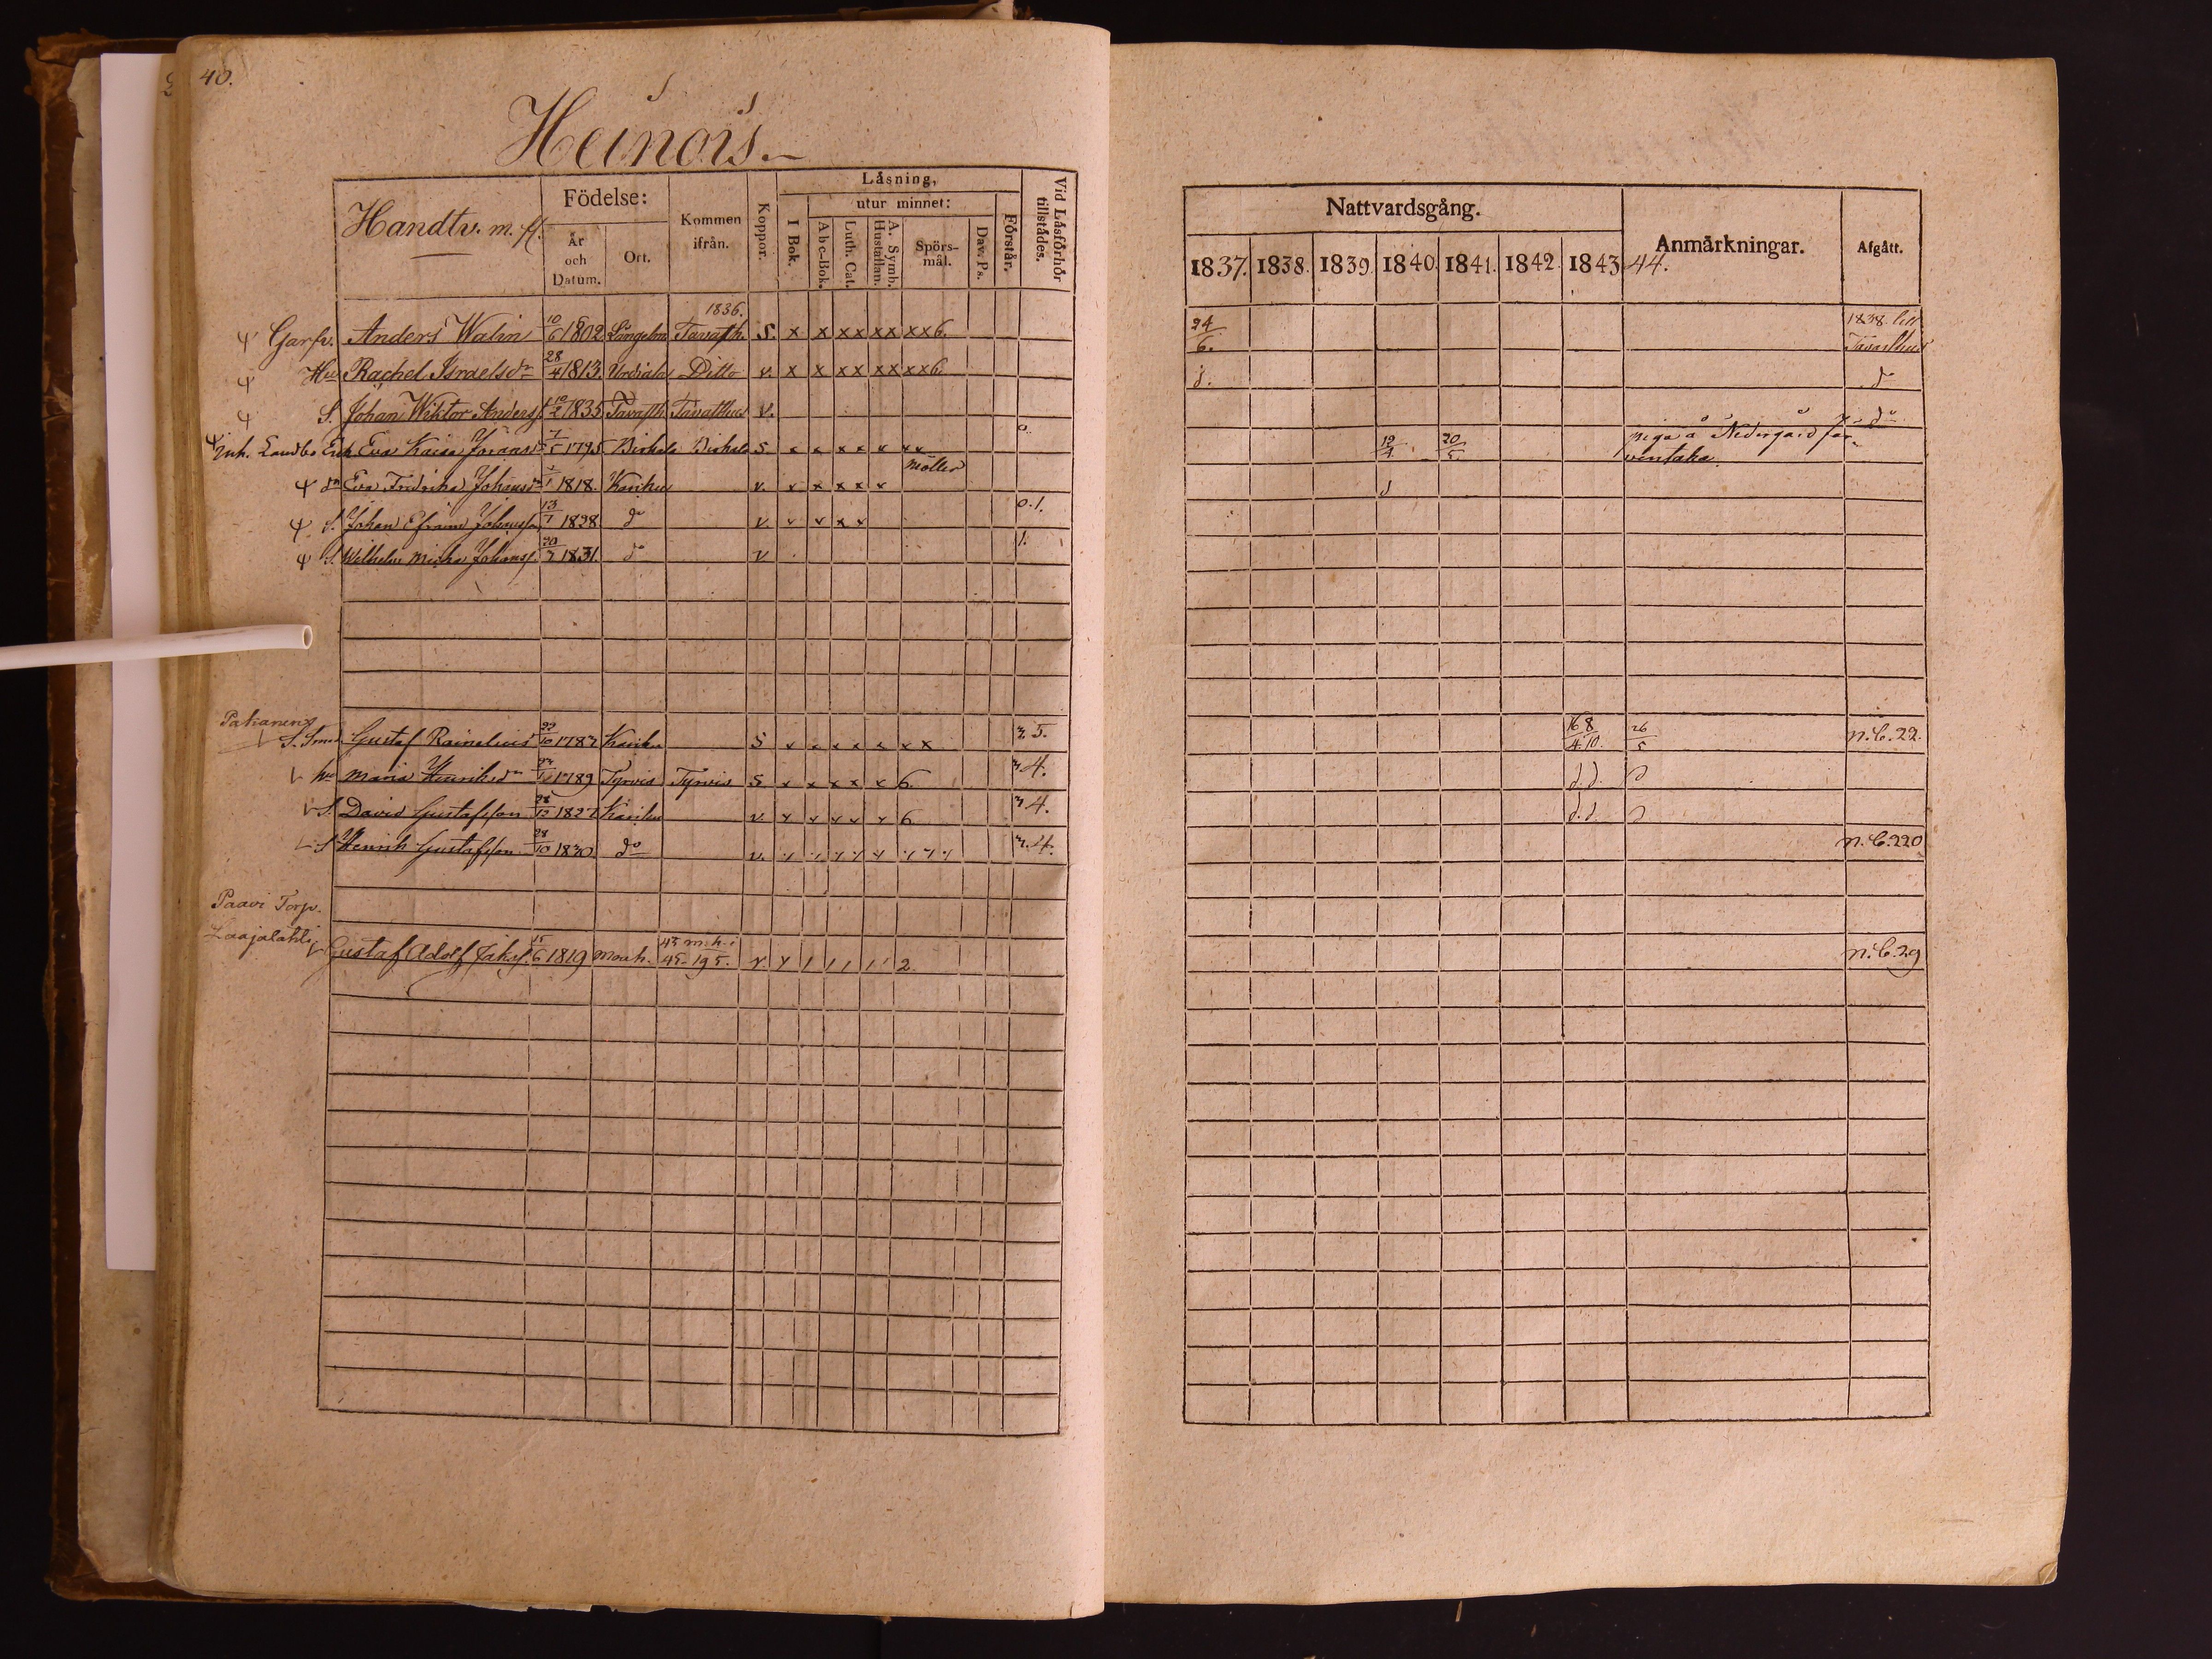 40.
Heinois.
Handtv. m. fl.
Födelse:
År och Datum.
Ort.
Kommen ifrån.
Koppor.
Läsning,
I Bok.
utur minnet:
Abc-Bok.
Luth. Cat.
A. Symb. Hustaflan.
Spörsmål.
Dav. Ps.
Förstår.
Vid Läsförhör tillstädes.
1836.
Garfv. Anders Walin 10/6 1802 Längelm Tavasth. S. x x xx xx xx6.
Hu Rachel Israelsdr 28/4 1813 Urdiala Ditto v. x x xx xx xx6.
S. Johan Wiktor Anders 10/2 1835 Tavasth. Tavasthus v.
Inh. Eva Kaisa 7/5 1795 Birkala Birkala S x x x x x xx 0.
möller
dr Eva Fredrika Johansdr 1818. v. x x x x x
S. Johan Efraim Johanss 13/7 1828 do v. 0.1.
S. Wilhelm Johanss. 1831. do v 1.
S. Gustaf Rainelius 1783 S x x 3.5.
hu Maria Henriksdr 1789 Tyrvis Tyrvis S x x x x x 6. 3.4.
S. David Gustafsson 1827 v. 6 3.4.
S Henrik Gustafsson 28/10 1830 do v. 3.4.
Paavi Torp.
Laajalahti
Gustaf Adolf Jaks. 15/6 1819 Mouh. 45- 195. v. 2.
Nattvardsgång.
1837. 1838. 1839. 1840. 1841. 1842. 1843. 44.
Anmärkningar.
Afgått.
24/6. 1838. till Tavasthus
d. do
do
12/4 20/5 piga å Nedergård
d
16 8/4 10. 26/5 n. b. 22.
d. d. d
d. d. d
n. b. 220
n. b. 29